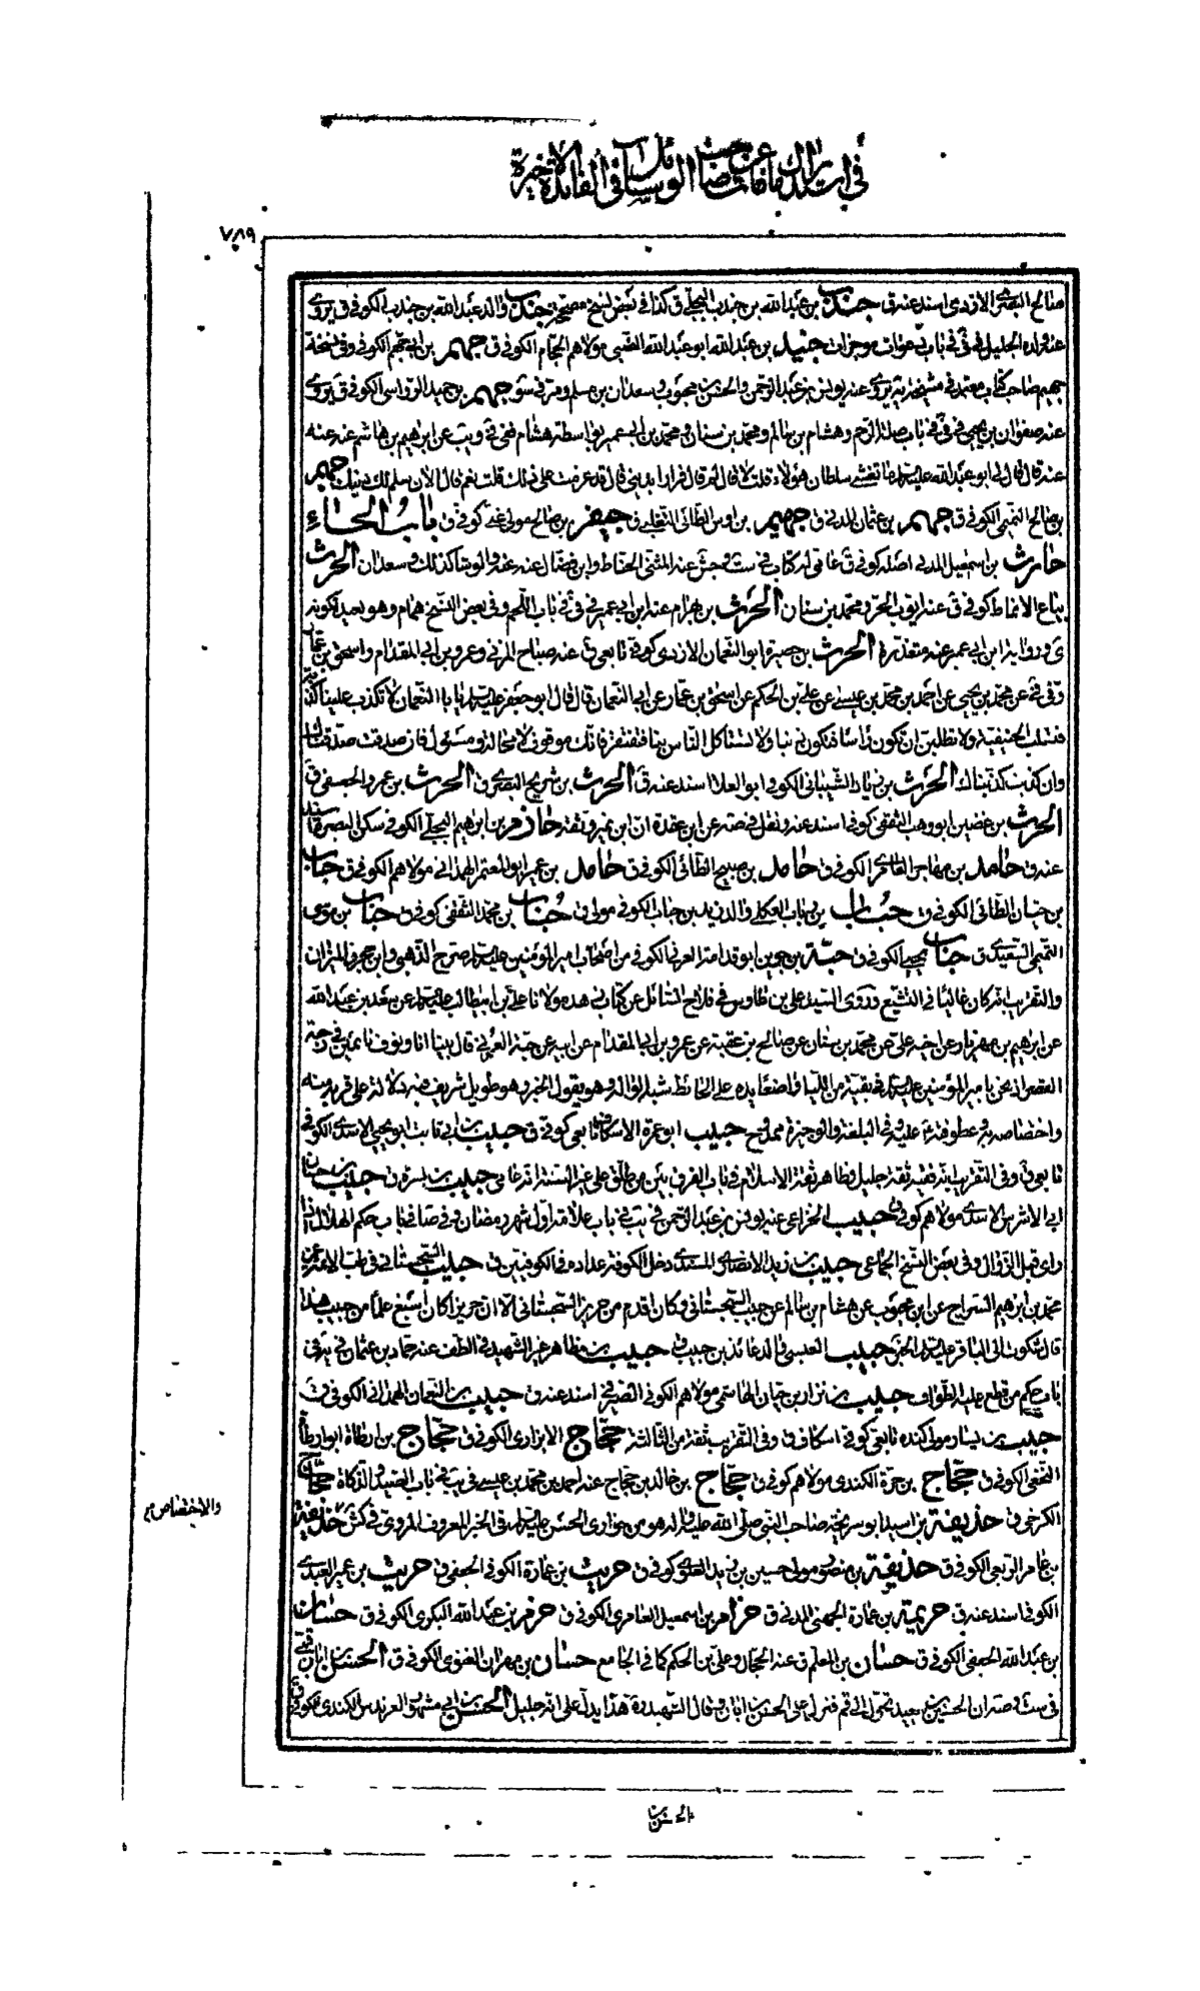 في استدراك ما فات عن صاحب الوسائل في الفائدة الاخيرة
٧٨٩
صالح البصري الازدي اسند عنه ق جندب بن عبد الله بن جندب البجلي ق كذا في بعض نسخ مصححة جندب والد عبد الله بن جندب الكوفي ق يروي
عنه ولده الجليل في في باب دعوات موجزات جنيد بن عبد الله ابو عبد الله الضبي مولاهم الحجام الكوفي ق جهم بن ابي جهم الكوفي وفي نسخة
جهيم صاحب كتاب معتمد في مشيخة يروي عنه يونس بن عبد الرحمن والحسن بن محبوب وسعدان بن مسلم ومر في جهم بن حميد الرواسي الكوفي ق يروي
عنه صفوان بن يحيى في في في باب صلة الرحم وهشام بن سالم ومحمد بن سنان ومحمد بن ابي عمير بواسطة هشام ففي في ويب عن ابراهيم بن هاشم عنه عنه
عنه قال قال لي ابو عبد الله عليه السلام ما تغشى سلطان هؤلاء قلت لا قال لم قال فرارا بديني قال قد عزمت على ذلك قلت نعم قال الان سلم لك دينك جهم
بن صالح التميمي الكوفي ق جهم بن عثمان المدني ق جهيم بن اوس الطائي الثعلبي ق جيفر بن صالح مولى كوفي ق باب الحاء
حارث بن اسمعيل المدني اصله كوفي ق له كتاب في ست وجش عنه المثنى الحناط وابن فضال عنه عنه سعدان الحرث
بياع الانماط كوفي ق عنه ايوب الحر ومحمد بن سنان الحرث بن بهرام عنه ابن ابي عمير في في في باب اللحم وفي بعض النسخ همام وهو بعيد لكونه
ى ورواية ابن ابي عمير عنه متعذرة الحرث بن حصيرة ابو النعمان الازدي كوفي تابعي ق عنه صباح المزني وعمرو بن ابي المقدام واسحق بن عمار
وفي في عن محمد بن يحيى عن احمد بن محمد بن عيسى عن علي بن الحكم عن اسحق بن عمار عن ابي النعمان قال قال ابو جعفر عليه السلام يا ابا النعمان لا تكذب علينا كذبة
فتسلب الحنيفية ولا تطلبن ان تكون راسا فتكون ذنبا ولا تستاكل الناس بنا فتفتقر فانك موقوف لا محالة ومسئول فان صدقت صدقناك
وان كذبت كذبناك الحرث بن زياد الشيباني الكوفي ابو العلا اسند عنه ق الحرث بن شريح البصري ق الحرث بن عمرو الجعفي ق
الحرث بن غضين ابو وهب الثقفي كوفي اسند عنه ونقل في صه عن ابن عقدة ان ابن نمير وثقه حازم بن ابراهيم البجلي الكوفي سكن البصرة اسند
عنه ق حامد بن مهاجر الكوفي ق حامد بن صبيح الطائي الكوفي ق حامد بن عمير ابو المعتمر الهمداني مولاهم الكوفي ق حباب
بن حيان الطائي الكوفي ق حباب بن رباب العكلي والد زيد بن حباب الكوفي مولى ق حباب بن محمد الثقفي كوفي ق حباب بن موسى
التميمي السعيدي ق حباب بن يحيى الكوفي ق حبة بن جوين ابو قدامة العرني الكوفي من اصحاب امير المؤمنين عليه السلام صرح الذهبي وابن حجر في الميزان
والتقريب انه كان غاليا في التشيع وروى السيد علي بن طاوس في فلاح السائل عن كتاب زهد مولانا علي بن ابي طالب عليه السلام عن سعد بن عبد الله
عن ابراهيم بن مهزيار عن اخيه علي عن محمد بن سنان عن صالح بن عقبة عن عمرو بن ابي المقدام عن ابيه عن حبة العرني قال بينا انا ونوف نائمين في رحبة
القصر اذ نحن بامير المؤمنين عليه السلام في بقية من الليل واضعا يده على الحائط شبه الواله وهو يقول الخبر وهو طويل شريف فيه دلالة على قربه منه
واختصاصه به وعطوفته ع عليه وفي البلغة والوجيزة ممدوح حبيب ابو عمرة الاسكافي تابعي كوفي ق حبيب بن ابي ثابت ابو يحيى الاسدي الكوفي
تابعي ق وفي التقريب انه فقيه ثقة جليل وظاهر ثقة الاسلام في باب الفرق بين من طلق على غير السنة انه عامي حبيب بن بسرة ق حبيب بن حسان
ابي الاشرس الاسدي مولاهم كوفي ق حبيب الخزاعي عنه يونس بن عبد الرحمن في يب في باب علامة اول شهر رمضان وفي صا في باب حكم الهلال اذا
راى قبل الزوال وفي بعض النسخ الجماعي حبيب بن زيد الانصاري المسندي دخل الكوفة عداده في الكوفيين ق حبيب السجستاني في
محمد بن ابراهيم السراج عن ابن محبوب عن هشام بن سالم عن حبيب السجستاني وكان اقدم من حريز السجستاني الا ان حريزا كان اسبغ علما من حبيب هذا
قال شكوت الى الباقر عليه السلام الخبر حبيب العبسي والد عائذ بن حبيب ق حبيب بن مظاهر غير الشهيد في الطف عنه حماد بن عثمان في يه في
باب حكم من قطع عليه الطواف حبيب بن نزار بن حيان الهاشمي مولاهم الكوفي الصيرفي اسند عنه ق حبيب بن النعمان الهمداني الكوفي ق
حبيب بن يسار مولى كندة تابعي كوفي اسكاف ق وفي التقريب ثقة من الثالثة حجاج الابزاري الكوفي ق حجاج بن ارطاة ابو ارطاة
النخعي الكوفي ق حجاج بن حمزة الكندي مولاهم كوفي ق حجاج بن خالد بن حجاج عنه احمد بن محمد بن عيسى في يب في باب الصيد والذكاة حجاج
الكرخي ق حذيفة بن اسيد ابو سريحة صاحب النبي صلى الله عليه واله وهو من حواري الحسن عليه السلام في الخبر المعروف المروي في كش حذيفة
بن عامر الربعي الكوفي ق حذيفة بن منصور مولى حسين بن زيد العلوي كوفي ق حريث بن عمارة الكوفي الجعفي ق حريث بن عمير العبدي
الكوفي اسند عنه ق حريمة بن عمارة الجهني المدني ق حزام بن اسمعيل العامري الكوفي ق حزم بن عبد الله البكري الكوفي ق حسان
بن عبد الله الجعفي الكوفي ق حسان بن المعلم ق عنه الحجال وعلي بن الحكم كما في الجامع حسان بن مهران الغنوي الكوفي ق الحسن بن ابان قمي
في ست وصه ان الحسين بن سعيد تحول الى قم فنزل على الحسن بن ابان وقال الشهيد ره هذا يدل على انه جليل الحسن بن ابي العرندس الكندي الكوفي ق
والاختصاص م
الحسن بن